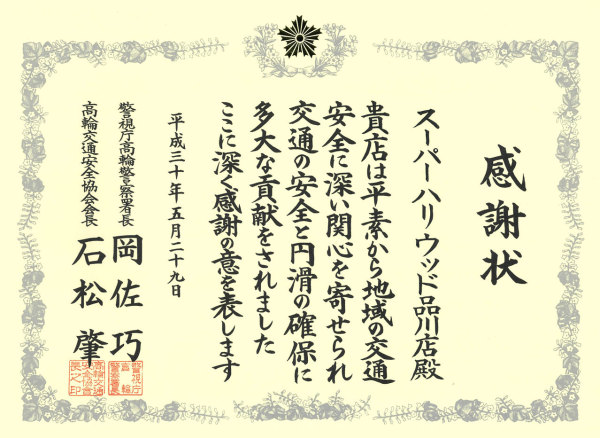 感謝状
スーパーハリウッド品川店殿
貴店は平素から地域の交通
安全に深い関心を寄せられ
交通の安全と円滑の確保に
多大な貢献をされました
ここに深く感謝の意を表します
平成三十年五月二十九日
警視庁高輪警察署長
岡佐巧
高輪交通安全協会会長
石松肇
警視庁
高輪
警察署長
高輪交通
安全協会
長之印